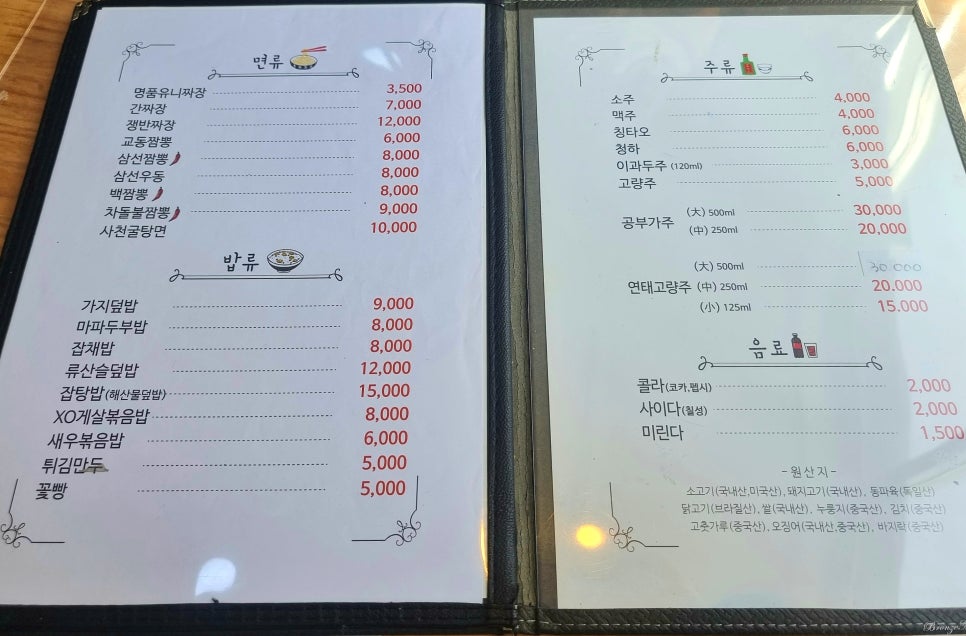 면류
명품유니짜장 3,500
간짜장 7,000
쟁반짜장 12,000
교동짬뽕 6,000
삼선짬뽕 8,000
삼선우동 8,000
백짬뽕 8,000
차돌불짬뽕 9,000
사천굴탕면 10,000
밥류
가지덮밥 9,000
마파두부밥 8,000
잡채밥 8,000
류산슬덮밥 12,000
잡탕밥(해산물덮밥) 15,000
XO게살볶음밥 8,000
새우볶음밥 6,000
튀김만두 5,000
꽃빵 5,000
주류
소주 4,000
맥주 4,000
칭타오 6,000
청하 6,000
이과두주 (120ml) 3,000
고량주 5,000
공부가주 (大) 500ml 30,000
(中) 250ml 20,000
(大) 500ml 30.000
연태고량주 (中) 250ml 20.000
(小) 125ml 15.000
음료
콜라(코카,펩시) 2,000
사이다(칠성) 2,000
미린다 1,500
-원산지-
소고기(국내산,미국산), 돼지고기(국내산), 동파육(독일산)
닭고기(브라질산), 쌀(국내산), 누룽지(중국산), 김치(중국산)
고춧가루(중국산), 오징어(국내산,중국산), 바지락(중국산)